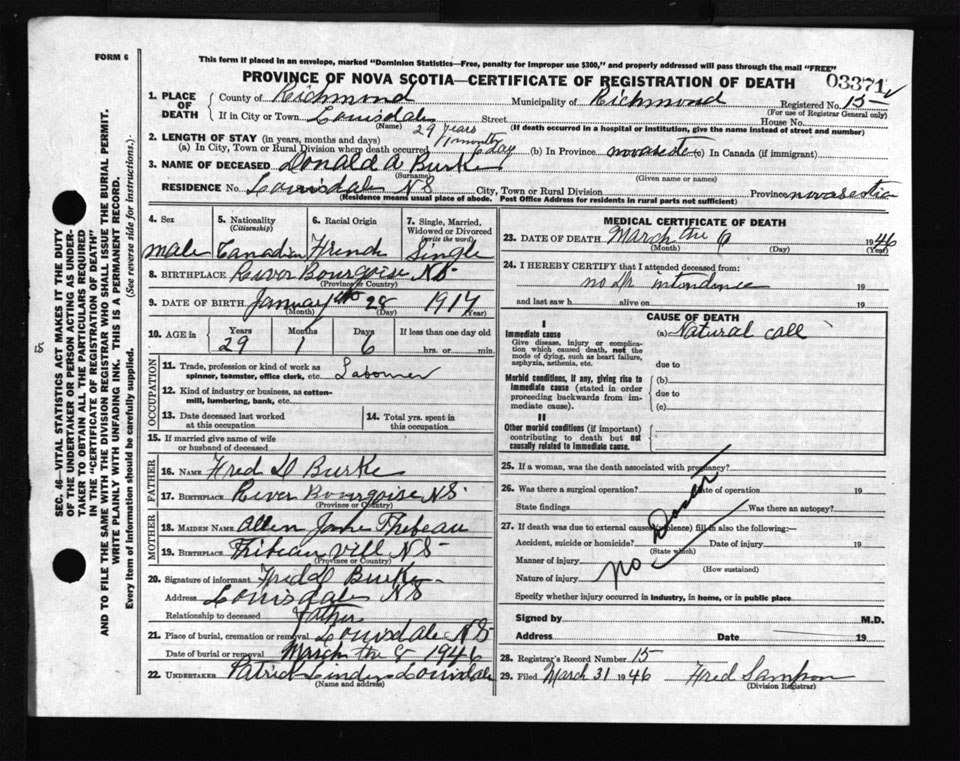 FORM 6
This form if placed in an envelope, marked "Dominion Statistics—Free, penalty for improper use $300," and properly addressed will pass through the mail "FREE"
PROVINCE OF NOVA SCOTIA—CERTIFICATE OF REGISTRATION OF DEATH
03371
1. PLACE OF DEATH
County of Richmond Municipality of Richmond Registered No. 15
(For use of Registrar General only)
If in City or Town Louisdale Street House No.
(Name) (If death occurred in a hospital or institution, give the name instead of street and number)
2. LENGTH OF STAY (in years, months and days) 29 years 1 month 6 day
(a) In City, Town or Rural Division where death occurred (b) In Province novascotia (c) In Canada (if immigrant)
3. NAME OF DECEASED Donald A Burke
(Surname) (Given name or names)
RESIDENCE No. Louisdale NS City, Town or Rural Division Province novascotia
(Residence means usual place of abode. Post Office Address for residents in rural parts not sufficient)
4. Sex male
5. Nationality (Citizenship) Canadian
6. Racial Origin French
7. Single, Married, Widowed or Divorced (write the word) Single
8. BIRTHPLACE River Bourgoise NS
(Province or Country)
9. DATE OF BIRTH January the 28 1917
(Month) (Day) (Year)
10. AGE in Years 29 Months 1 Days 6 If less than one day old hrs. or min.
OCCUPATION
11. Trade, profession or kind of work as spinner, teamster, office clerk, etc. Laborner
12. Kind of industry or business, as cotton-mill, lumbering, bank, etc.
13. Date deceased last worked at this occupation
14. Total yrs. spent in this occupation
15. If married give name of wife or husband of deceased
FATHER
16. NAME Fred D Burke
17. BIRTHPLACE River Bourgoise NS
(Province or Country)
MOTHER
18. MAIDEN NAME Allen Jane Thibeau
19. BIRTHPLACE Thibeau vill NS
(Province or Country)
20. Signature of informant Fred D Burke
Address Louisdale NS
Relationship to deceased Father
21. Place of burial, cremation or removal Louisdale NS
Date of burial or removal March the 8 1946
22. UNDERTAKER Patrick Linden Louisdale
(Name and address)
MEDICAL CERTIFICATE OF DEATH
23. DATE OF DEATH March the 6 1946
(Month) (Day) (Year)
24. I HEREBY CERTIFY that I attended deceased from:
no dr intendince 19
and last saw h alive on 19
CAUSE OF DEATH
I
Immediate cause
Give disease, injury or complication which caused death, not the mode of dying, such as heart failure, asphyxia, asthenia, etc.
(a) Natural call
due to
Morbid conditions, if any, giving rise to immediate cause (stated in order proceeding backwards from immediate cause).
(b)
due to
(c)
II
Other morbid conditions (if important) contributing to death but not causally related to immediate cause.
25. If a woman, was the death associated with pregnancy?
26. Was there a surgical operation? Date of operation 19
State findings Was there an autopsy?
27. If death was due to external causes (violence) fill in also the following:—
Accident, suicide or homicide? Date of injury 19
(State which)
Manner of injury
(How sustained)
Nature of injury
no Doctor
Specify whether injury occurred in industry, in home, or in public place
Signed by M.D.
Address Date 19
28. Registrar's Record Number 15
29. Filed March 31 1946 Fred Sampson
(Division Registrar)
SEC. 46—VITAL STATISTICS ACT MAKES IT THE DUTY
OF THE UNDERTAKER OR PERSON ACTING AS UNDER-
TAKER TO OBTAIN ALL THE PARTICULARS REQUIRED
IN THE "CERTIFICATE OF REGISTRATION OF DEATH"
AND TO FILE THE SAME WITH THE DIVISION REGISTRAR WHO SHALL ISSUE THE BURIAL PERMIT.
WRITE PLAINLY WITH UNFADING INK. THIS IS A PERMANENT RECORD.
Every item of Information should be carefully supplied. (See reverse side for instructions.)